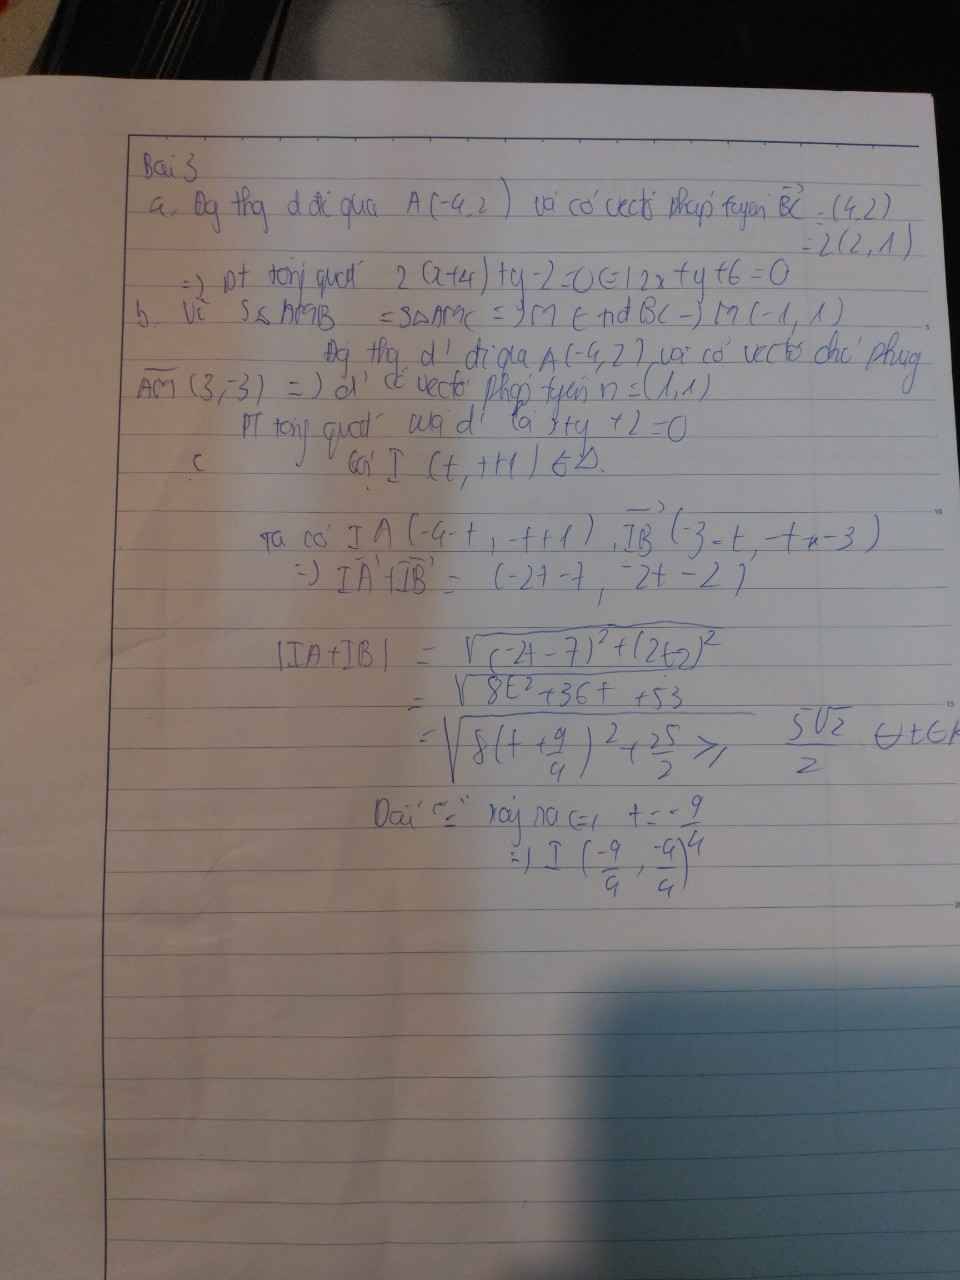 Bài 3
a. Đg thg d đi qua A(-4,2) và có vectơ pháp tuyến BC = (4,2)
= 2(2,1)
=) pt tổng quát 2(x+4)+y-2=0 (=) 2x+y+6=0
b. Vì S△AMB = S△AMC =) M t nđ BC -) M(-1,1)
Đg thg d' đi qua A(-4,2) và có vectơ chỉ phưg
AM (3,-3) =) d' có vectơ pháp tuyến n=(1,1)
PT tổng quát của d' là x+y+2=0
c Gọi I (t, t+1) ∈ Δ.
Ta có IA(-4-t, -t+1), IB(-3-t, -t-3)
=) IA+IB = (-2t-7, -2t-2)
|IA+IB| = √(-2t-7)²+(2t+2)²
= √8t²+36t+53
= √8(t+9/4)²+25/2 ≥ 5√2/2 ∀t∈R
Dấu "=" xảy ra (=) t=-9/4
=) I (-9/4, -9/4)